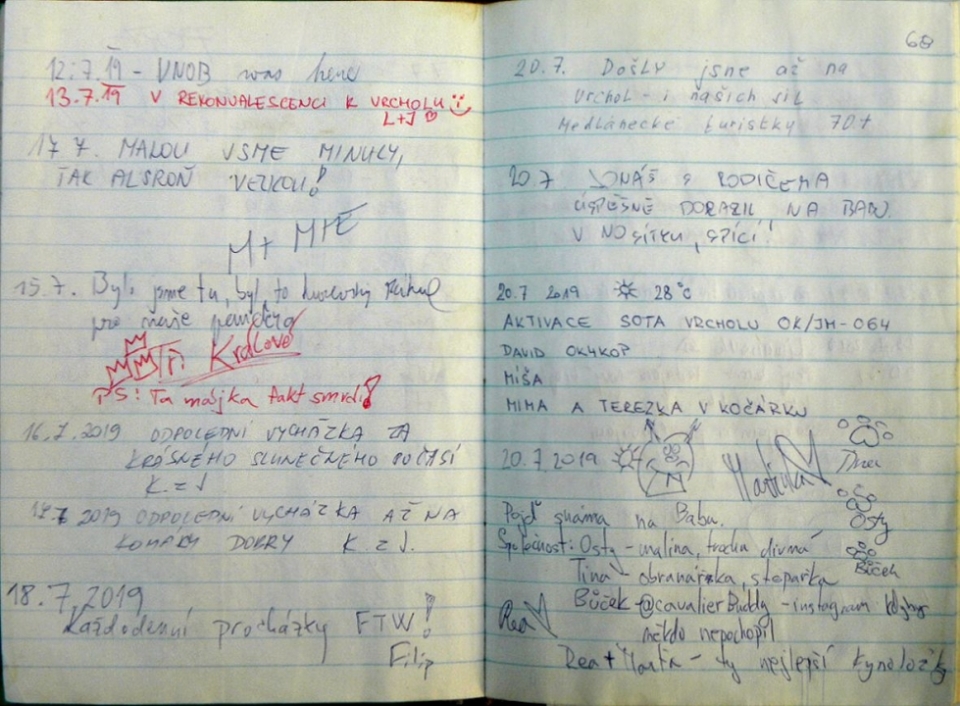 12.7.19 - VNOB was here
13.7.19 V REKONVALESCENCI K VRCHOLU
L+J
17 7. MALOU VSME MINULY,
TAK ALSROŇ VELKOU!
M+
15.7. Byli jsme tu, byl to
pro naše
Tři Králové
PS: Ta májka fakt smrdí!
16.7.2019 ODPOLEDNÍ VYCHÁZKA ZA
KRÁSNÉHO SLUNEČNÉHO POČASÍ
K. z J.
2019 ODPOLEDNÍ VYCHÁZKA AŽ NA
KOMÁRY DOBRÝ K. z J.
18.7.2019
Každodenní procházky FTW!
Filip
68
20.7. Došly jsne až na
vrchol - i našich sil
Medlánecké turistky 70+
20.7 JONÁŠ S RODIČEMA
ÚSPĚŠNĚ DORAZIL NA BABU.
V NOSÍTKU, SPÍCÍ!
20.7 2019 28°C
AKTIVACE SOTA VRCHOLU OK/JM-064
DAVID OK4KOP
MÍŠA
MIMA A TEREZKA V KOČÁRKU
20.7.2019 Martina
Pojď snáma na Babu.
Osty
Společnost: Osty - malina, trochu divná
Bůček
Tina - obranářka, stopařka
Bůček - @cavalierBuddy - instagram kdyby
Rea
někdo nepochopil
Rea + Martina - ty nejlepší kynoložky